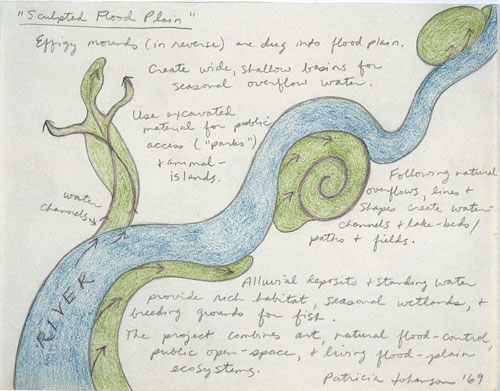 "Sculpted Flood Plain"
Effigy mounds (in reverse) are dug into flood plain.
Create wide, shallow basins for
seasonal overflow water.
Use excavated
material for public
access ("parks")
+ animal-
islands.
water
channels
Following natural
overflows, lines +
shapes create water-
channels + lake-beds/
paths + fields.
RIVER
Alluvial deposits + standing water
provide rich habitat, seasonal wetlands, +
breeding grounds for fish.
The project combines art, natural flood-control,
public open-space, + living flood-plain
ecosystems.
Patricia Johanson '69